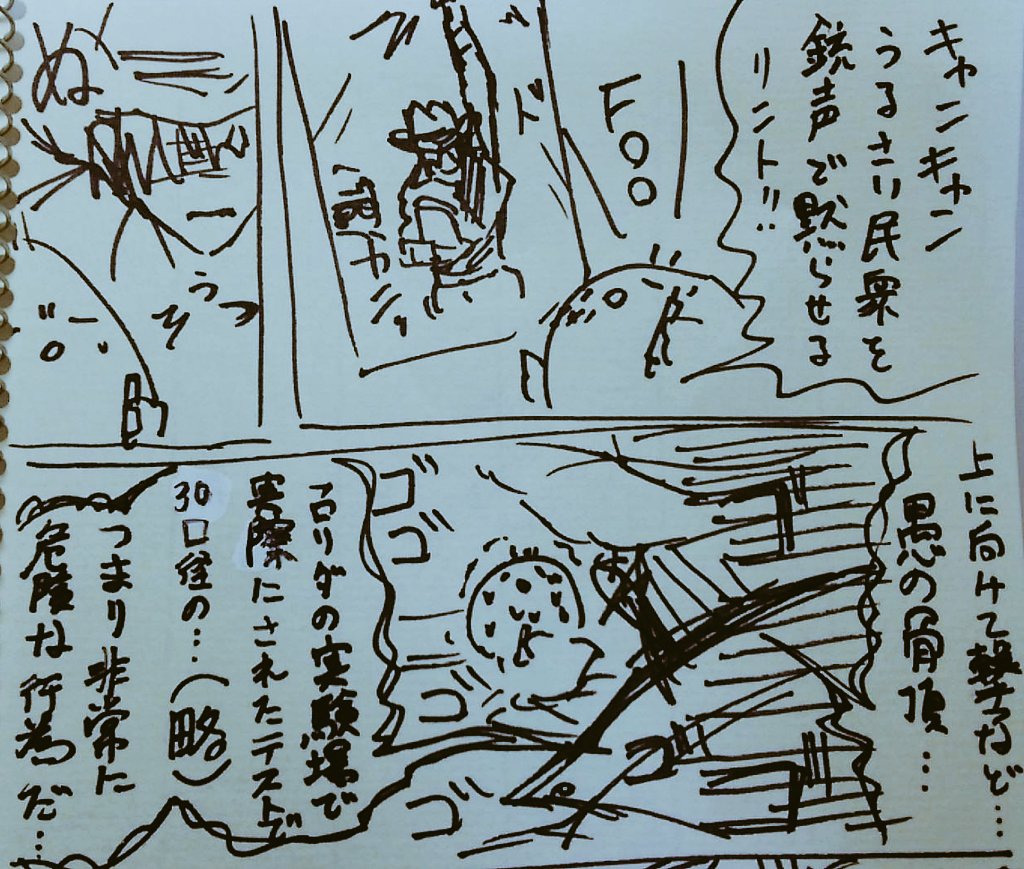 キャンキャン
うるさい民衆を
銃声で黙らせる
リント!!
FOO
ド
ぬ
うっ
ぞ
上に向けて撃つなど…
愚の骨頂…
ゴ
ゴ
ゴ
ゴ
ゴ
ゴ
ロリダの実験場で
実際にされたテストで
30口径の…(略)
つまり非常に
危険な行為だ…